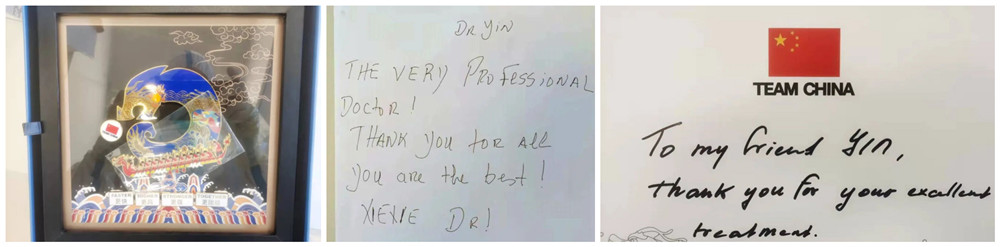 Dr Yin
THE VERY PROFESSIONAL
DOCTOR!
THANK YOU FOR ALL
You are the best!
XIEXIE DR!
TEAM CHINA
To my friend YIN,
thank you for your excellent
treatment.